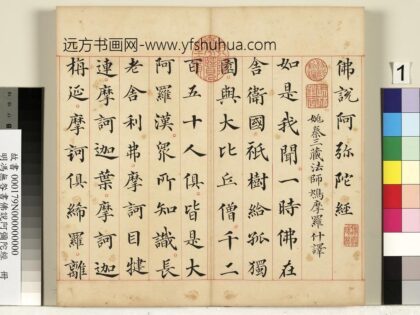 远方书画网-www.yfshuhua.com
佛說阿弥陀經
姚秦三藏法師鳩摩羅什譯
如是我聞一時佛在
舍衛國祇樹給孤獨
園與大比丘僧千二
百五十人俱皆是大
阿羅漢眾所知識長
老舍利弗摩訶目犍
連摩訶迦葉摩訶迦
栴延摩訶俱絺羅離
1
故書000179N000000000